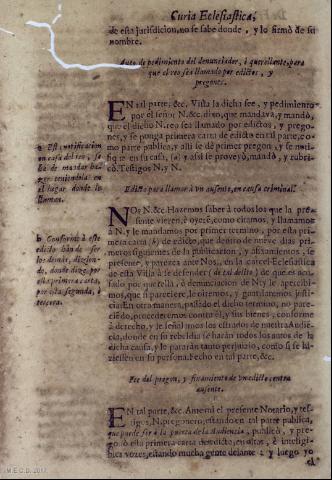 Curia Eclesiastica,
de esta jurisdicion, no se sabe donde, y lo firmò de su
nombre.
Auto de pedimiento del denunciador, i querellante, para
que el reo sea llamado por edictos, y
pregones.
EN tal parte, &c. Vista la dicha fee, y pedimiento
por el señor N. &c. dixo, que mandava, y mandò,
que el dicho N. reo sea llamado por edictos, y prego-
nes, y se ponga primera carta de edicto en tal parte, co-
mo parte publica, y assi se dè primer pregon, y se noti-
fique en su casa, (a) y assi se proveyò, mandò, y rubri-
cò. Testigos N. y N.
a Esta notificacion
en casa del reo, se
ha de mandar ha-
zer teniendola en
el lugar donde le
llaman.
Edicto para llamar à vn ausente, en causa criminal.
NOs N. &c. Hazemos saber à todos los que la pre-
sente vieren, è oyerè, como citamos, y llamamos
à N. y le mandamos por primer termino, por esta pri-
mera carta (b) de edicto, que dentro de nueve dias pri-
meros siguientes de la publicacion, y afixamiento, se
presente, y parezca ante Nos, en la carcel Eclesiastica
de esta Villa à se defender (de tal delito) de que es acu-
sado por querella, ò denunciacion de N. y le apercibi-
mos, que si pareciere, le oiremos, y guardaremos justi-
cia: En otra manera, passado el dicho termino, no pare-
ciendo, procederemos contra èl, y sus bienes, conforme
à derecho, y le señalamos los estrados de nuestra Audiè-
cia, donde en su rebeldia se haràn todos los autos de la
dicha causa, y le pararàn tanto perjuizio, como si se hi-
ziessen en su persona. Fecho en tal parte, &c.
b Conforme à este
edicto han de ser
los demàs, dizien-
do, donde dize, por
esta primera carta,
por esta segunda, è
tercera.
Fee del pregon, y fixamiento de vn edicto contra
ausente.
EN tal parte, &c. Ante mi el presente Notario, y tes-
tigos, N. pregonero, estando en tal parte publica,
que puede ser à la puerta de la Audiencia, publicò, y pre-
gonò esta primera carta de edicto, en altas, è inteligi-
bles vozes, estando mucha gente delante: y luego yo
el
M.E.C.D. 2017